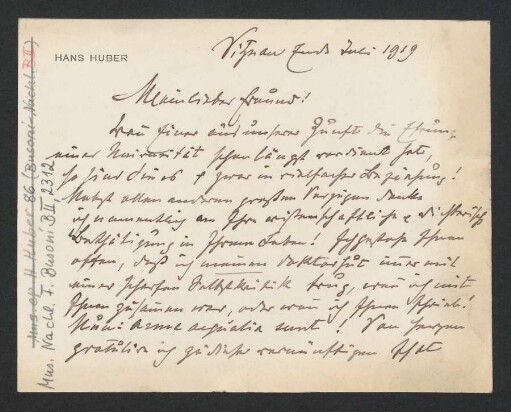 HANS HUBER
Vitznau Ende Juli 1919
Mein lieber Freund!
Wenn Einer aus unserer Zunft die Ehrung
einer Universität schon längst verdient hat,
so sind Sie es & zwar in vielfacher Beziehung!
Nebst allen anderen großen Vorzügen denke
ich namentlich an Ihre wissenschaftliche & dichterische
Bethätigung in Ihrem Leben! Ich gestehe Ihnen
offen, daß ich meinen Doktorhut immer mit
einer scharfen Selbstkritik trug, wenn ich mit
Ihnen zusammen war, oder wenn ich Ihnen schrieb!
Nunc arma aequalia sunt! Von Herzen
gratulire ich zu dieser vernünftigen That
Mus. ep. H. Huber 86 (Busoni-Nachl. B II)
Mus. Nachl. F. Busoni B II, 2312